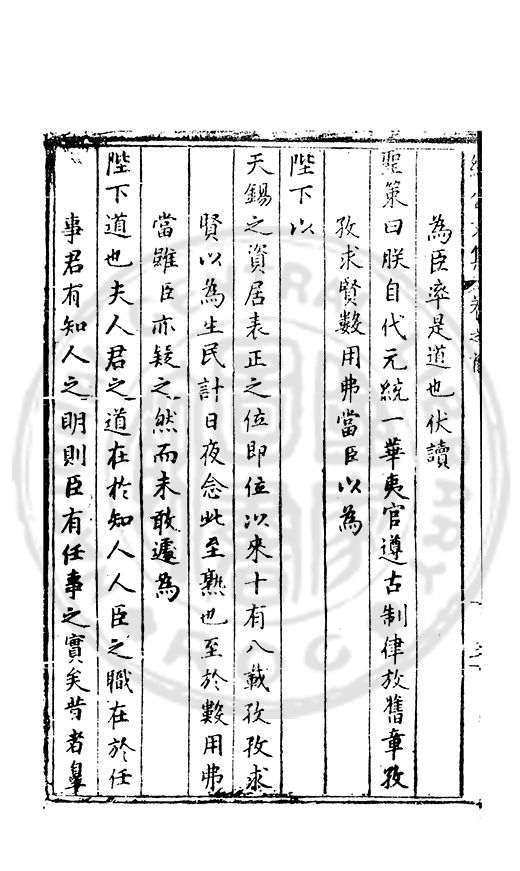 為臣率是道也伏讀
聖策曰朕自代元統一華夷官遵古制律放舊章孜
孜求賢數用弗當臣以為
陛下以
天錫之資居表正之位即位以來十有八載孜孜求
賢以為生民計日夜念此至熟也至於數用弗
當雖臣亦疑之然而未敢遽為
陛下道也夫人君之道在於知人人臣之職在於任
事君有知人之明則臣有任事之實矣昔者皐